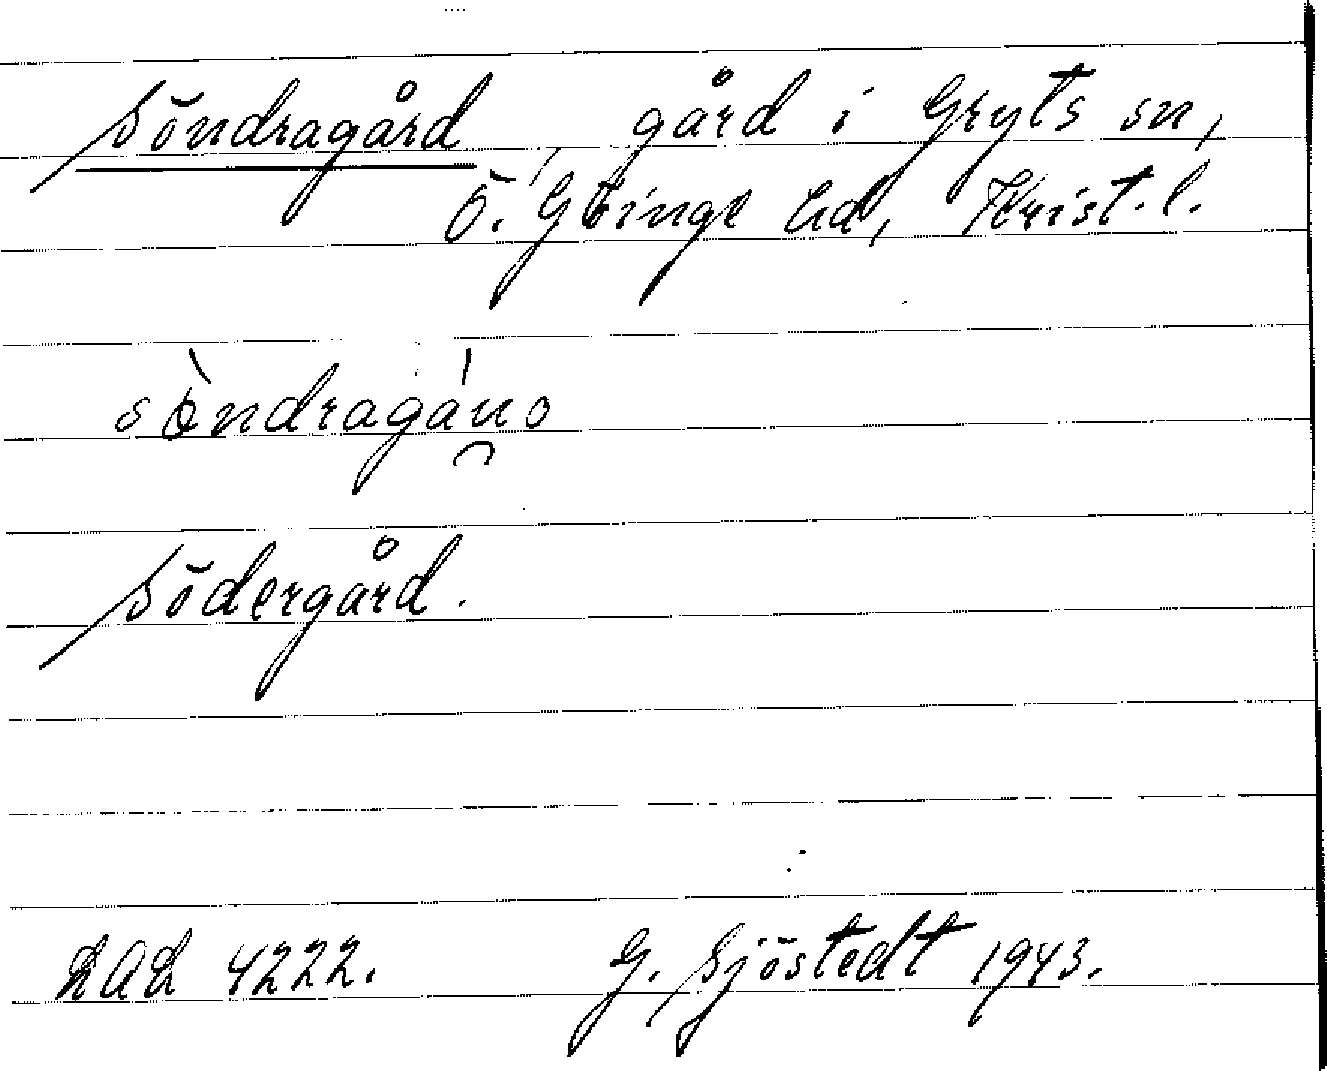 Söndragård, gård i Gryts sn,
Ö. Göinge hd, Krist. l.
sö̀ndragáu̯o
Södergård.
LAL 4222. G. Sjöstedt 1943.